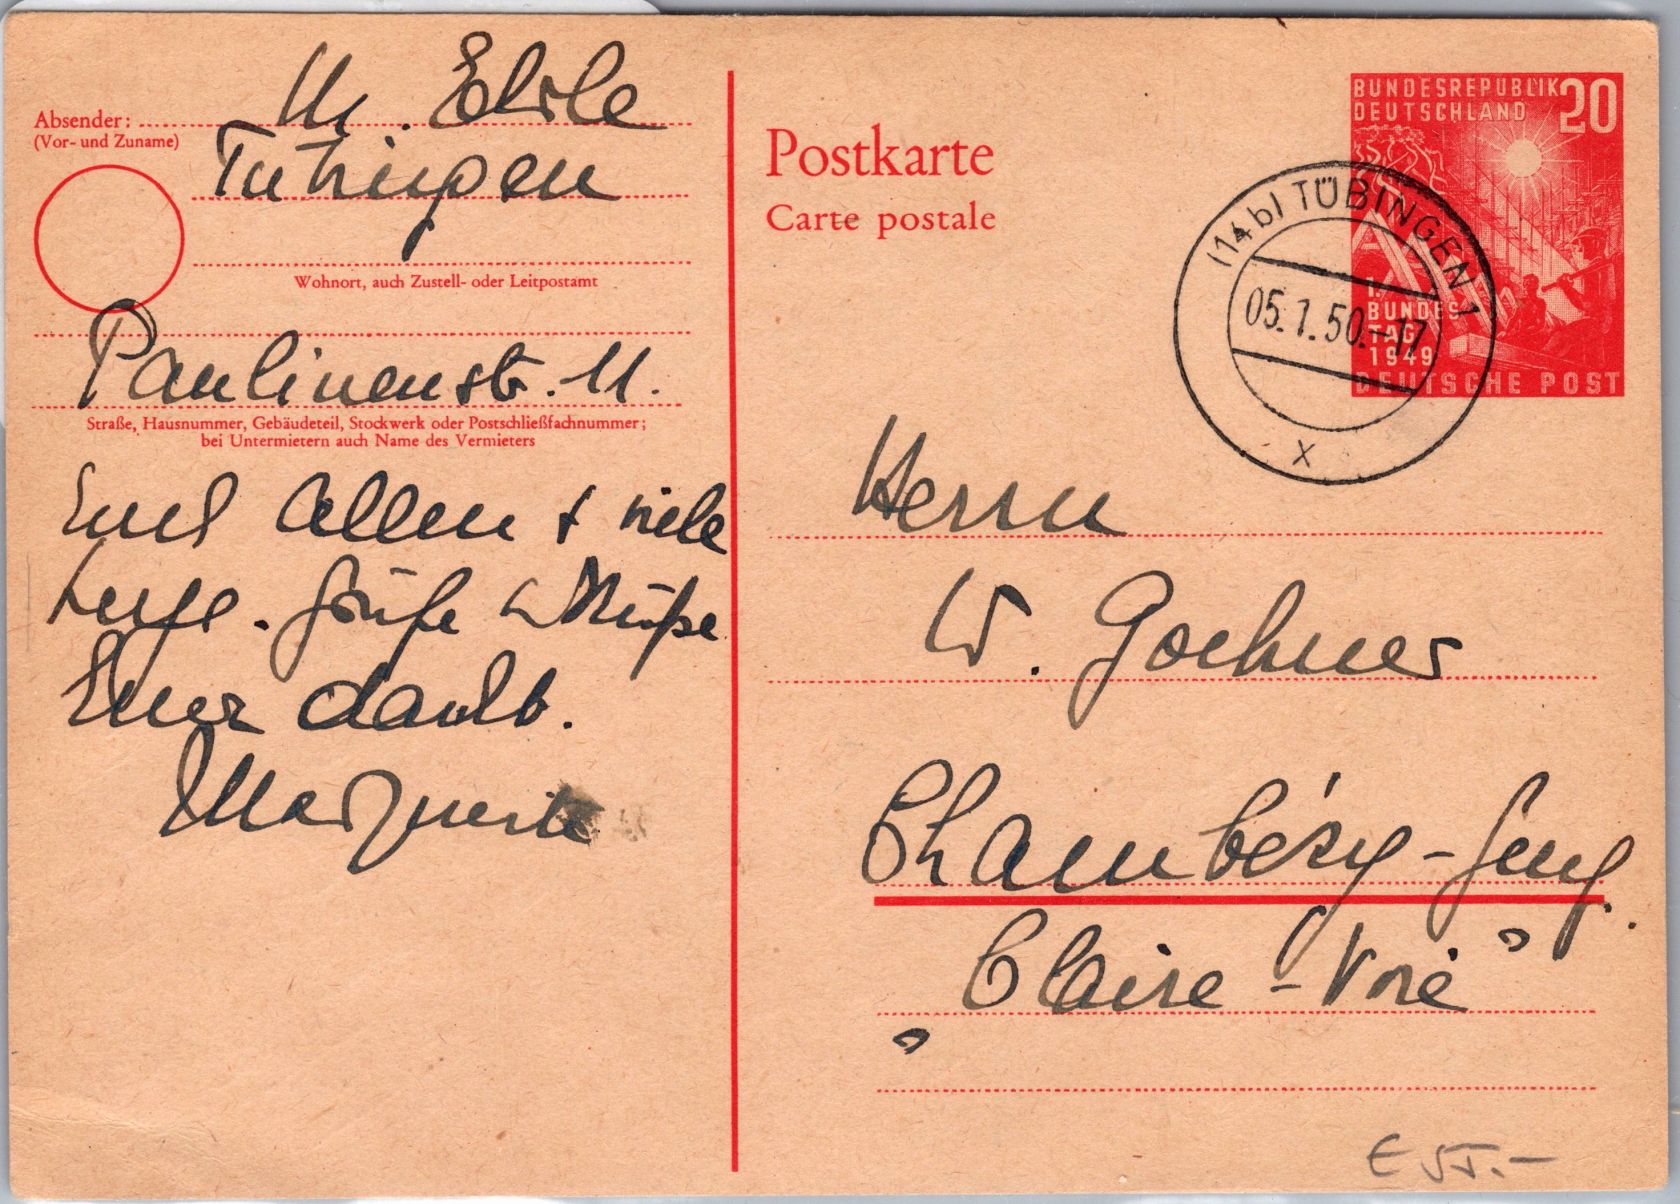 Absender: M. Ehrle
(Vor- und Zuname)
Tübingen
Wohnort, auch Zustell- oder Leitpostamt
Paulinenstr. 11.
Straße, Hausnummer, Gebäudeteil, Stockwerk oder Postschließfachnummer;
bei Untermietern auch Name des Vermieters
Euch allen + viele
herzl. Grüße u Küße
Eurer dankb.
Marguerite
Postkarte
Carte postale
BUNDESREPUBLIK 20
DEUTSCHLAND
1.
BUNDES
TAG
1949
DEUTSCHE POST
(14b) TÜBINGEN 1
05.1.50.-17
x
Herrn
W. Goehner
Chambésy-Genf.
"Claire-Voie"